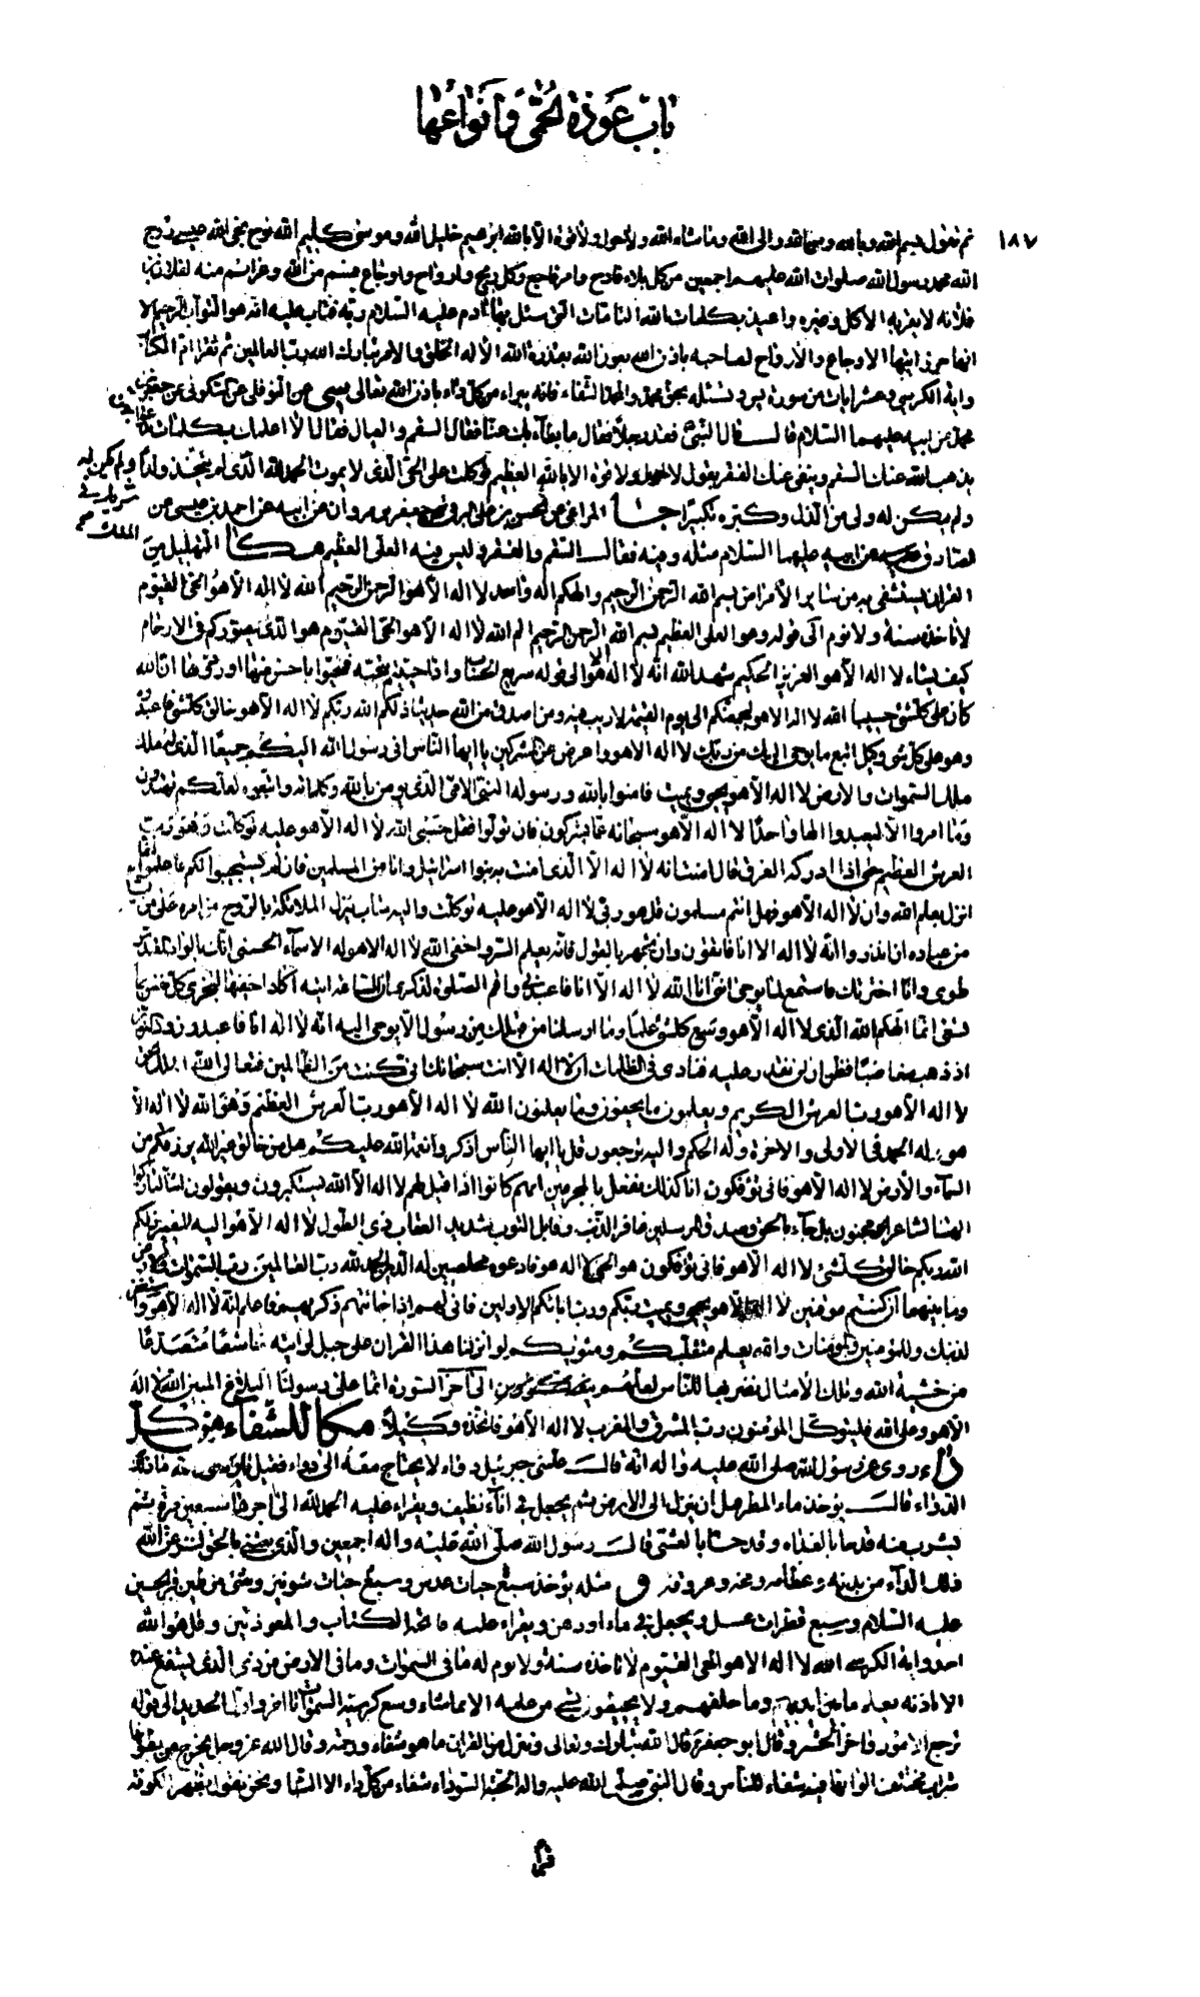 باب عوذة الحمى وأنواعها
١٨٧
ثم تقول بسم الله وبالله ومن الله والى الله وما شاء الله ولا حول ولا قوة الا بالله ابرهيم خليل الله وموسى كليم الله نوح نجى الله عيسى روح
الله محمد رسول الله صلوات الله عليهم اجمعين من كل بلاء فادح وامر فاجع وكل ريح وارواح واوجاع قسم من الله وعزائم منه لفلان بن
فلانة لا يقربه الاكل وغيره واعيذه بكلمات الله التامات التى سئل بها ادم عليه السلام ربه فتاب عليه انه هو التواب الرحيم الا
انها حرز ايتها الاوجاع والارواح لصاحبه باذن الله بعون الله بقدرة الله الا له الخلق والامر تبارك الله رب العالمين ثم تقرا ام الكتاب
واية الكرسى وعشر ايات من سورة يس وتسئله بحق محمد وال محمد الشفاء فانه يبراء من كل داء باذن الله تعالى
محمد عن ابيه عليهما السلام قال قال النبى فقد رجلا فقال ما ابطأ بك عنا فقال السقم والعيال فقال الا اعلمك بكلمات
يذهب الله عنك السقم وينفى عنك الفقر تقول لا حول ولا قوة الا بالله العظيم توكلت على الحى الذى لا يموت الحمد لله الذى لم يتخذ ولدا ولم يكن له شريك فى الملك
ولم يكن له ولى من الذل وكبره تكبيرا
عن ابيه عليهما السلام مثله وفيه فقال السقم والفقر وليس فيه العلى العظيم التهليل من
القران يستشفى به من سائر الامراض بسم الله الرحمن الرحيم والهكم اله واحد لا اله الا هو الرحمن الرحيم الله لا اله الا هو الحى القيوم
لا تاخذه سنة ولا نوم الى قوله وهو العلى العظيم بسم الله الرحمن الرحيم الم الله لا اله الا هو الحى القيوم هو الذى يصوركم فى الارحام
كيف يشاء لا اله الا هو العزيز الحكيم شهد الله انه لا اله الا هو الى قوله سريع الحساب واذا حييتم بتحية فحيوا باحسن منها او ردوها ان الله
كان على كل شئ حسيبا الله لا اله الا هو ليجمعنكم الى يوم القيمة لا ريب فيه ومن اصدق من الله حديثا ذلكم الله ربكم لا اله الا هو خالق كل شئ فاعبدوه
وهو على كل شئ وكيل اتبع ما يوحى اليك من ربك لا اله الا هو واعرض عن المشركين يا ايها الناس انى رسول الله اليكم جميعا الذى له ملك
ملك السموات والارض لا اله الا هو يحيى ويميت فامنوا بالله ورسوله النبى الامى الذى يؤمن بالله وكلماته واتبعوه لعلكم تهتدون
وما امروا الا ليعبدوا الها واحدا لا اله الا هو سبحانه عما يشركون فان تولوا فقل حسبى الله لا اله الا هو عليه توكلت وهو رب
العرش العظيم حتى اذا ادركه الغرق قال امنت انه لا اله الا الذى امنت به بنوا اسرائيل وانا من المسلمين فان لم يستجيبوا لكم فاعلموا انما
انزل بعلم الله وان لا اله الا هو فهل انتم مسلمون قل هو ربى لا اله الا هو عليه توكلت واليه متاب ينزل الملائكة بالروح من امره على من يشاء
من عباده ان انذروا انه لا اله الا انا فاتقون وان تجهر بالقول فانه يعلم السر واخفى الله لا اله الا هو له الاسماء الحسنى انك بالواد المقدس
طوى وانا اخترتك فاستمع لما يوحى اننى انا الله لا اله الا انا فاعبدنى واقم الصلوة لذكرى ان الساعة اتية اكاد اخفيها لتجزى كل نفس بما
تسعى انما الهكم الله الذى لا اله الا هو وسع كل شئ علما وما ارسلنا من قبلك من رسول الا يوحى اليه انه لا اله الا انا فاعبدون وذا النون
اذ ذهب مغاضبا فظن ان لن نقدر عليه فنادى فى الظلمات ان لا اله الا انت سبحانك انى كنت من الظالمين فتعالى الله الملك الحق
لا اله الا هو رب العرش الكريم ويعلم ما يخفون وما يعلنون الله لا اله الا هو رب العرش العظيم وهو الله لا اله الا
هو له الحمد فى الاولى والاخرة وله الحكم واليه ترجعون قل يا ايها الناس اذكروا نعمة الله عليكم هل من خالق غير الله يرزقكم من
السماء والارض لا اله الا هو فانى تؤفكون انا كذلك نفعل بالمجرمين انهم كانوا اذا قيل لهم لا اله الا الله يستكبرون ويقولون ائنا لتاركوا
الهتنا لشاعر مجنون بل جاء بالحق وصدق المرسلين غافر الذنب وقابل التوب شديد العقاب ذى الطول لا اله الا هو اليه المصير ذلكم
الله ربكم خالق كل شئ لا اله الا هو فانى تؤفكون هو الحى لا اله الا هو فادعوه مخلصين له الدين الحمد لله رب العالمين رب السموات والارض
وما بينهما ان كنتم موقنين لا اله الا هو يحيى ويميت ربكم ورب ابائكم الاولين فانى لهم اذا جاءتهم ذكريهم فاعلم انه لا اله الا هو واستغفر
لذنبك وللمؤمنين والمؤمنات والله يعلم متقلبكم ومثويكم لو انزلنا هذا القران على جبل لرايته خاشعا متصدعا
من خشية الله وتلك الامثال نضربها للناس لعلهم يتفكرون الى اخر السورة انما على رسولنا البلاغ المبين الله لا اله
الا هو وعلى الله فليتوكل المؤمنون رب المشرق والمغرب لا اله الا هو فاتخذه وكيلا مكا للشفاء من كل
داء روى عن رسول الله صلى الله عليه واله انه قال علمنى جبرئيل دواء لا يحتاج معه الى دواء فقيل يا رسول الله ما ذلك
الدواء قال يؤخذ ماء المطر قبل ان ينزل الى الارض ثم يجعل فى اناء نظيف ويقراء عليه الحمد لله الى اخرها سبعين مرة ثم
يشرب منه قدحا بالغداة وقدحا بالعشى قال رسول الله صلى الله عليه واله اجمعين والذى بعثنى بالحق لينزعن الله
ذلك الداء من بدنه وعظامه ومخه وعروقه و مثله يؤخذ سبع حبات عدس وسبع حبات شونيز وشئ من طين قبر الحسين
عليه السلام وسبع قطرات عسل ويجعل فى ماء او دهن ويقراء عليه فاتحة الكتاب والمعوذتين وقل هو الله
احد واية الكرسى الله لا اله الا هو الحى القيوم لا تاخذه سنة ولا نوم له ما فى السموات وما فى الارض من ذى الذى يشفع عنده
الا باذنه يعلم ما بين ايديهم وما خلفهم ولا يحيطون بشئ من علمه الا بما شاء وسع كرسيه السموات الى اخر واول الحديد الى قوله
ترجع الامور واخر الحشر وقال ابو جعفر قال الله تبارك وتعالى وننزل من القران ما هو شفاء ورحمة وقال الله عز وجل يخرج من بطونها
شراب مختلف الوانه فيه شفاء للناس وقال النبى صلى الله عليه واله الحبة السوداء شفاء من كل داء الا السام ونحن نقول بظهر الكوفة
قبر